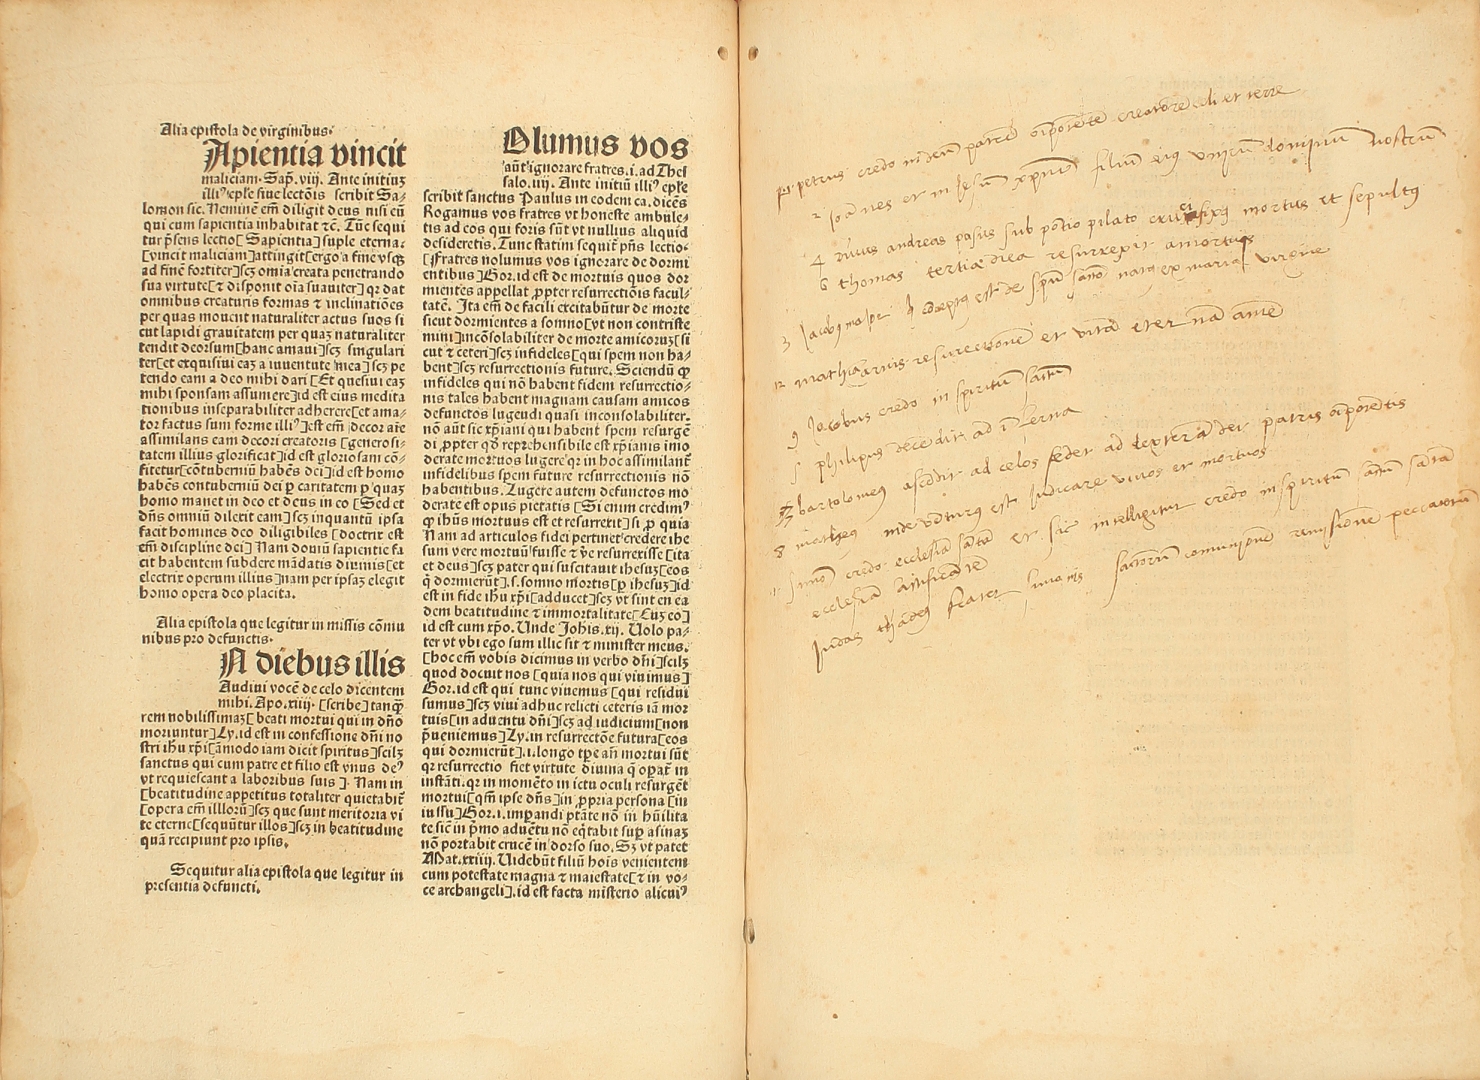 Alia epistola de virginibus.
Apientia vincit
maliciam. Sap̄. viij. Ante initiuꝫ
illiꝰ ep̄le siue lectōis scribit Sa-
lomon sic. Neminē em̄ diligit deus nisi eū
qui cum sapientia inhabitat ⁊c̄. Tūc sequi
tur p̄sens lectio[ Sapientia] suple eterna.
[vincit maliciam]attingit[ergo a fine vsqꝫ
ad finē fortiter]scꝫ om̄ia creata penetrando
sua virtute[⁊ disponit oīa suauiter] qꝛ dat
omnibus creaturis formas ⁊ inclinatiōes
per quas mouent naturaliter actus suos si
cut lapidi grauitatem per quaꝫ naturaliter
tendit deorsum[hanc amaui]scꝫ singulari
ter[et exquisiui eaꝫ a iuuentute mea]scꝫ pe
tendo eam a deo mihi dari [Et quesiui eaꝫ
mihi sponsam assumere]id est eius medita
tionibus inseparabiliter adherere[et ama-
tor factus sum forme illiꝰ]est em̄ decor aīe
assimilans eam decori creatoris [generosi-
tatem illius glorificat]id est gloriosam cō-
fitetur[cōtuberniū habēs dei]id est homo
habēs contuberniū dei ꝑ caritatem ꝑ quaꝫ
homo manet in deo et deus in eo [Sed et
dn̄s omniū dilexit eam]scꝫ inquantū ipsa
facit homines deo diligibiles [doctrix est
em̄ discipline dei] Nam donū sapientie fa
cit habentem subdere mādatis diuinis[et
electrix operum illius]nam per ipsaꝫ elegit
homo opera deo placita.
Alia epistola que legitur in missis cōmu
nibus pro defunctis.
N diebus illis
Audiui vocē de celo dicentem
mihi. Apo. xiiij. [scribe] tanqꝫ
rem nobilissimaꝫ[ beati mortui qui in dn̄o
moriuntur]Ly. id est in confessione dn̄i no
stri ih̄u xp̄i[āmodo iam dicit spiritus]scilꝫ
sanctus qui cum patre et filio est vnus deꝰ
vt requiescant a laboribus suis ]. Nam in
[beatitudine appetitus totaliter quietabit̄
[opera em̄ illorū]scꝫ que sunt meritoria vi
te eterne[sequūtur illos]scꝫ in beatitudine
quā recipiunt pro ipsis.
Sequitur alia epistola que legitur in
presentia defuncti.
Olumus vos
aūt ignorare fratres. i. ad Thes
salo. iiij. Ante initiū illiꝰ ep̄le
scribit sanctus Paulus in eodem ca. dicēs
Rogamus vos fratres vt honeste ambule-
tis ad eos qui foris sūt vt nullius aliquid
desideretis. Tunc statim sequit̄ p̄ns lectio.
[Fratres nolumus vos ignorare de dormi
entibus]Gor. id est de mortuis quos dor
mientes appellat ꝓpter resurrectiōis facul-
tatē. Ita em̄ de facili excitabūtur de morte
sicut dormientes a somno[vt non contriste
mini]incōsolabiliter de morte amicoruꝫ[si
cut ⁊ ceteri]scꝫ infideles[qui spem non ha-
bent]scꝫ resurrectionis future. Sciendū ꝙ
infideles qui nō habent fidem resurrectio-
nis tales habent magnam causam amicos
defunctos lugendi quasi inconsolabiliter.
nō aūt sic xp̄iani qui habent spem resurgē
di ꝓpter qd̄ reprehensibile est xp̄ianis imo
derate mortuos lugere qꝛ in hoc assimilant̄
infidelibus spem future resurrectionis nō
habentibus. Lugere autem defunctos mo
derate est opus pietatis [Si enim credimꝰ
ꝙ ih̄us mortuus est et resurrexit] si ꝓ quia
Nam ad articulos fidei pertinet credere ih̄e
sum vere mortuū fuisse ⁊ ṽe resurrexisse [ita
et deus]scꝫ pater qui suscitauit ih̄esuꝫ[eos
q̄ dormierūt]. s. somno mortis[ꝑ ih̄esuꝫ]id
est in fide ih̄u xp̄i[adducet]scꝫ vt sint en ea
dem beatitudine ⁊ immortalitate[Cuꝫ eo]
id est cum xp̄o. Unde Joh̄is. xij. Uolo pa-
ter vt vbi ego sum illic sit ⁊ minister meus.
[hoc em̄ vobis dicimus in verbo dn̄i]scilꝫ
quod docuit nos [quia nos qui viuimus]
Gor. id est qui tunc viuemus [qui residui
sumus]scꝫ viui adhuc relicti ceteris iā mor
tuis[in aduentu dn̄i]scꝫ ad iudicium[non
p̄ueniemus]Ly. in resurrectōe futura[eos
qui dormierūt]. i. longo tp̄e an̄ mortui sūt
qꝛ resurrectio fiet virtute diuina q̄ oꝑat̄ in
instāti. qꝛ in momēto in ictu oculi resurgēt
mortui[qm̄ ipse dn̄s]in ꝓpria persona [in
iussu]Gor. i. imꝑandi ptāte nō in hūilita
te sic̄ in p̄mo aduētu nō eq̄tabit suꝑ asinaꝫ
nō portabit crucē in dorso suo. Sꝫ vt patet
Mat. xxiiij. Uidebūt filiū hoīs venientem
cum potestate magna ⁊ maiestate[⁊ in vo-
ce archangeli]. id est facta misterio alicuiꝰ
petrus credo in deum patrē oīpotētē creatorē celi et terre
2 Joānes et in Jesū xp̄m filiū eiꝰ vnicū dominū nostrū
4 diuus andreas pasus sub pōtio pilato crucifixꝰ mortus et sepultꝰ
6 thomas tertia diea resurrexit amortuis
3 Jacobꝰ maior cōceptꝰ est de spū sāto natꝰ ex maria virgine
12 mathias carnis resurectionē et vitā eternā amē
9 Jacobus credo in spiritū sātū
5 philipus decedit ad īferna
bartolomeꝰ ascēdit ad celos sedet ad dexterā dei patris oīpotētis
8 matheꝰ inde vēturꝰ est Judicare viuos et mortuos
11 simō credo ecclesiā sātā et sic intelligitur credo in spiritū sātū sātā
ecclesiā sātificātē
Judas thadeꝰ frater simonis sātorū comunionē remisionē peccatorū